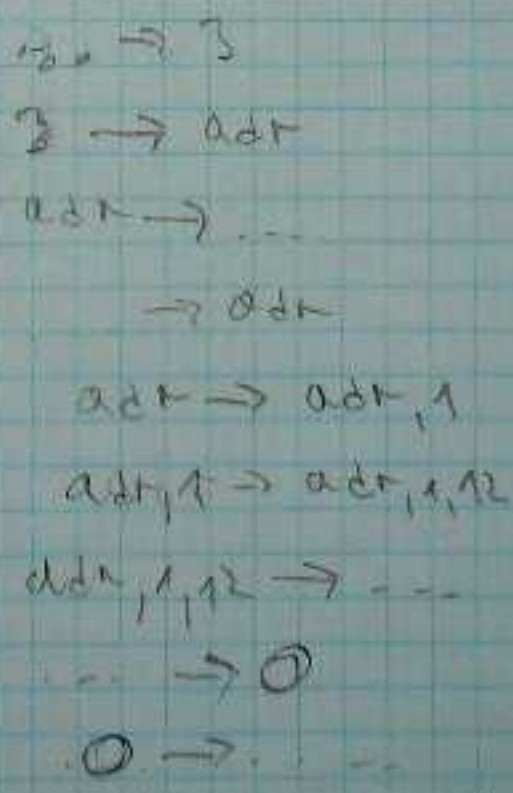 → 3
3 → adr
adr → ....
→ adr
adr → adr,1
adr,1 → adr,1,12
adr,1,12 → ---
... → O
.O → . . --